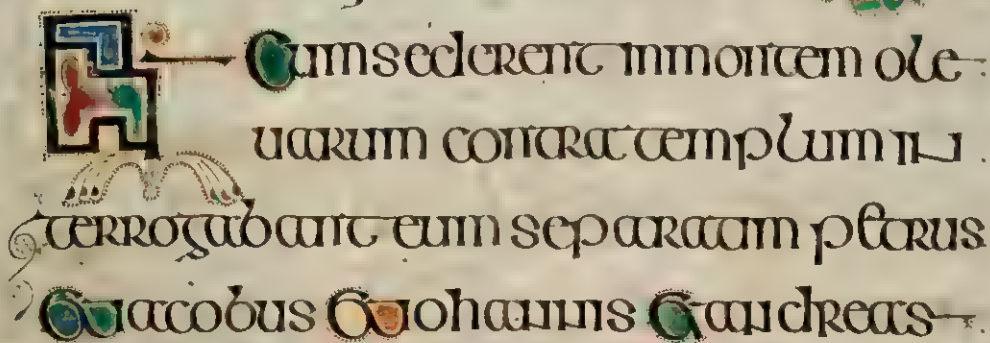 Et Cumsederent inmontem ole
uarum contra templum in
terrogabant eum separatim petrus
Et iacobus Et iohannis Et andreas